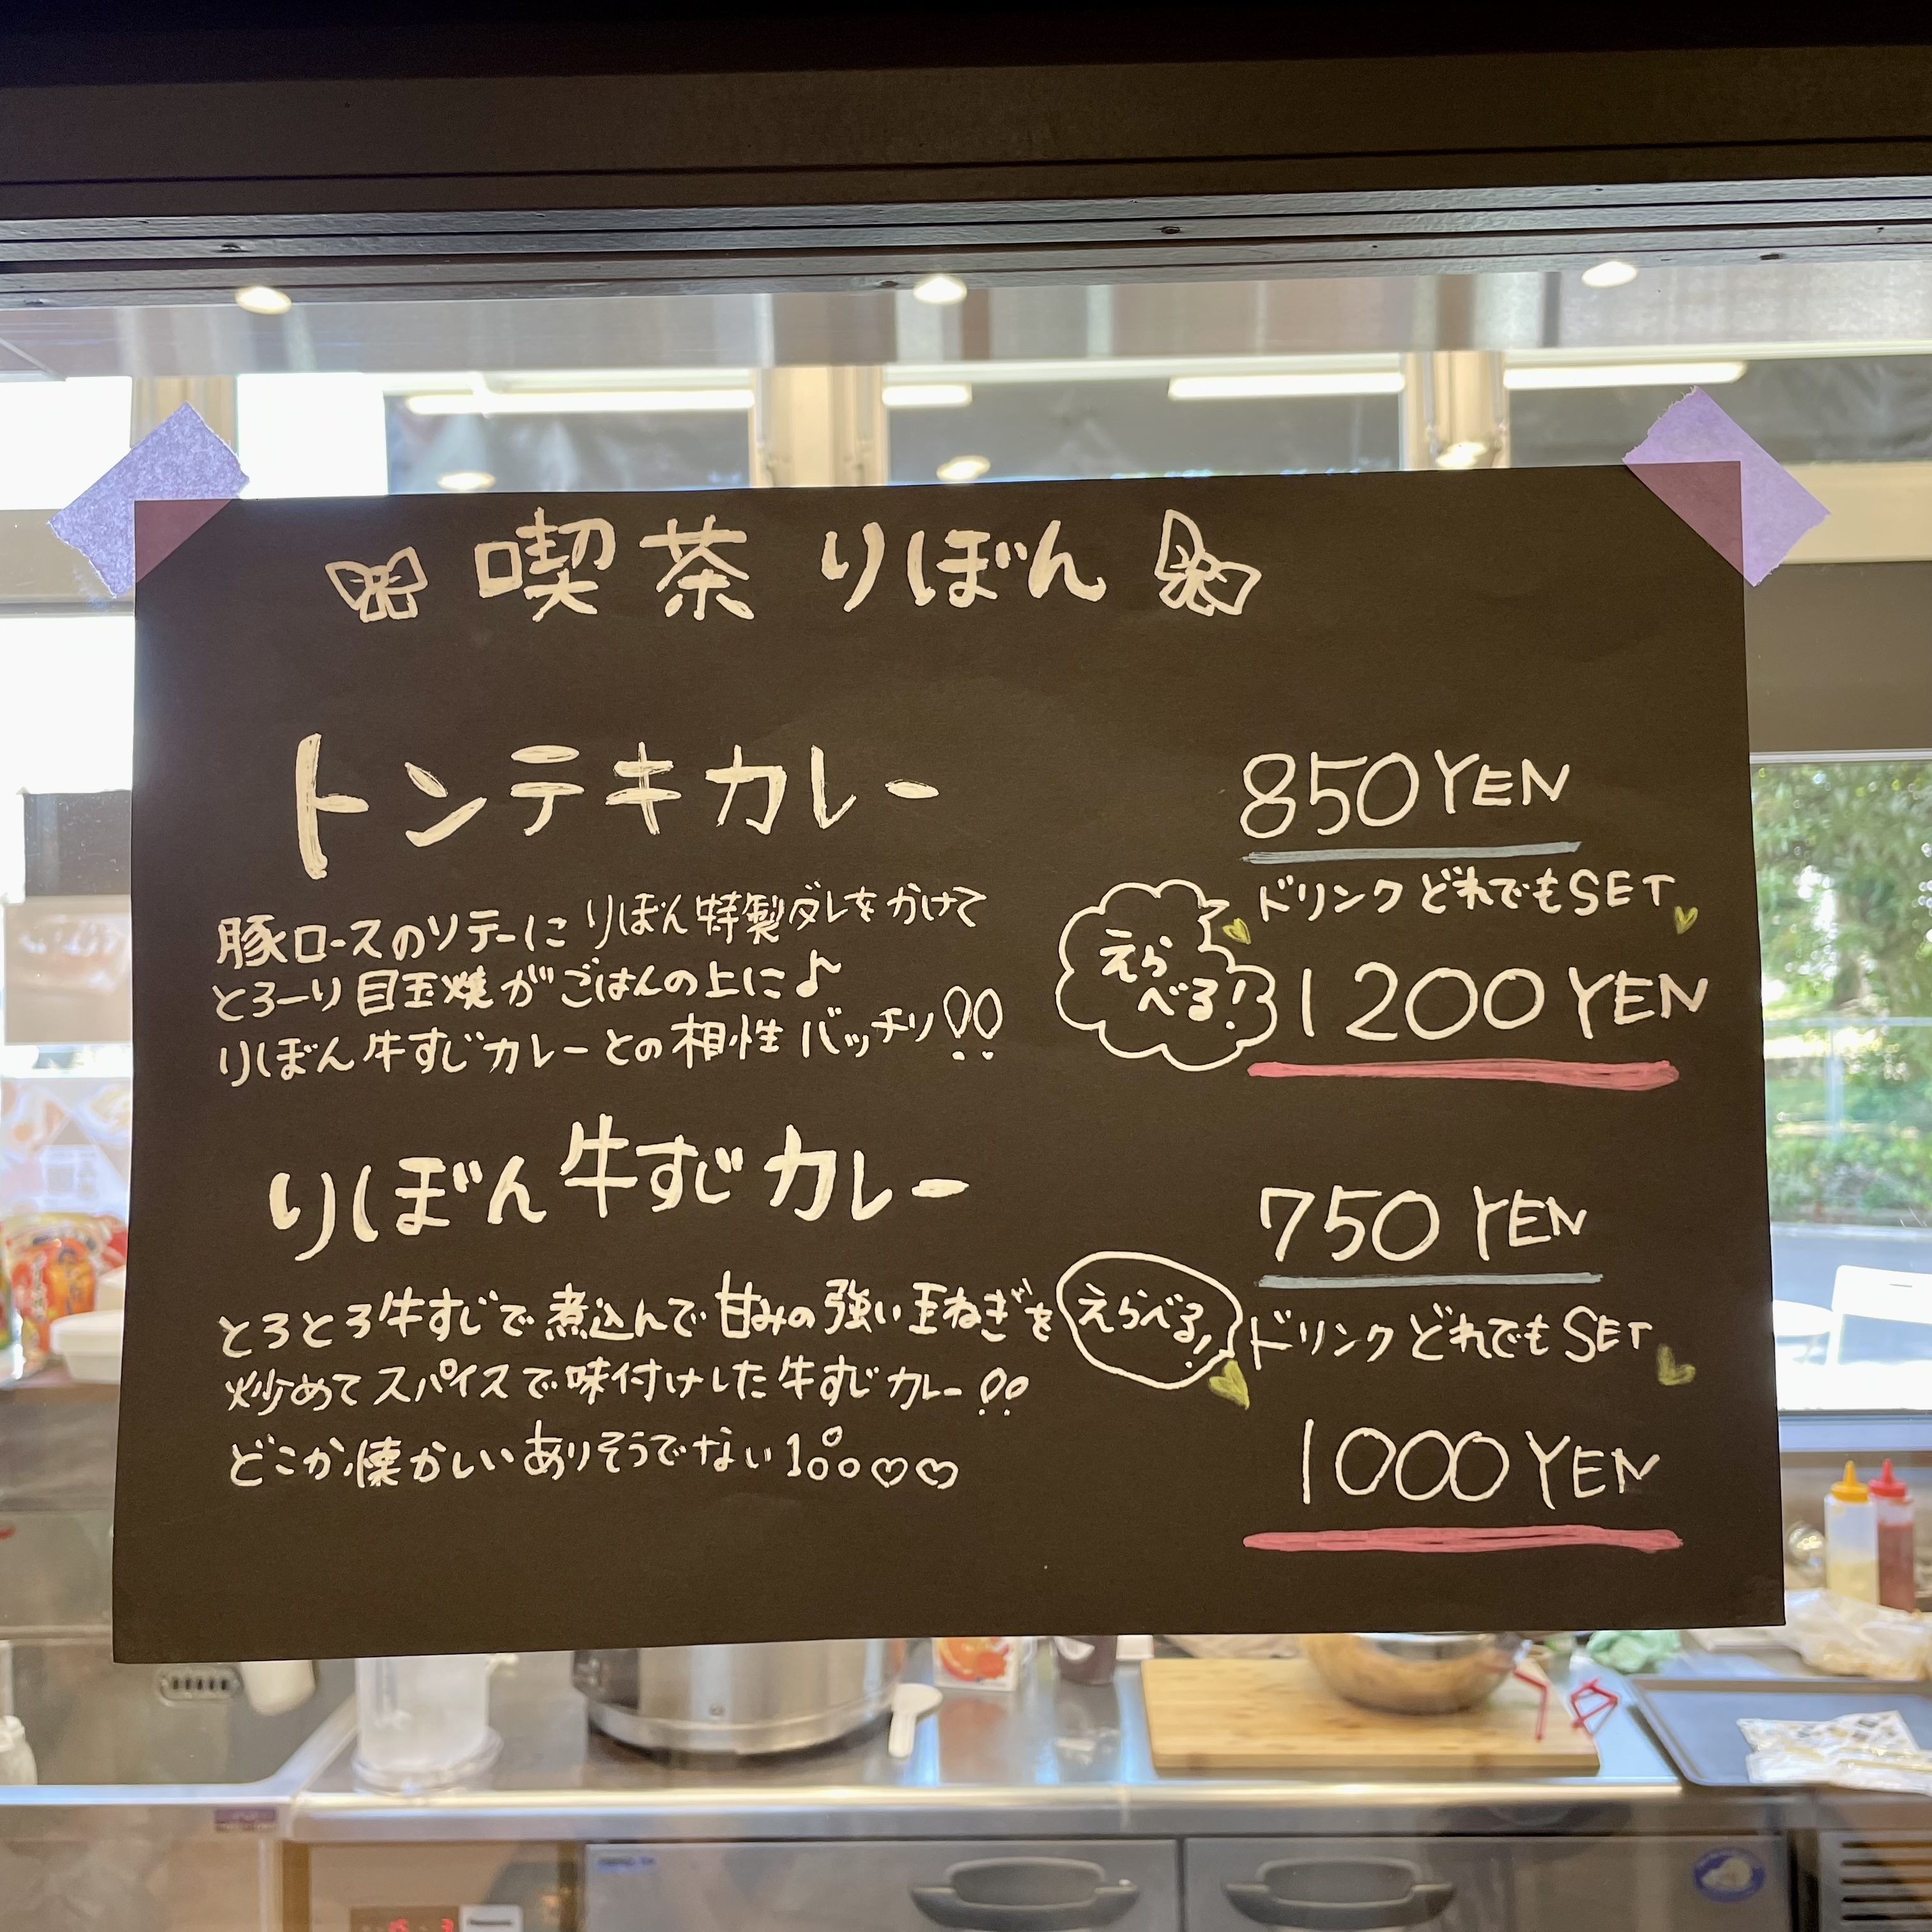 喫茶 りぼん
トンテキカレー
850 YEN
豚ロースのソテーに りぼん特製ダレをかけて
とろーり目玉焼がごはんの上に♪
りぼん牛すじカレーとの相性 バッチリ!!
えらべる!
ドリンクどれでもSET
1200 YEN
りぼん牛すじカレー
750 YEN
とろとろ牛すじで煮込んで甘みの強い玉ねぎを
炒めてスパイスで味付けした牛すじカレー!!
どこか懐かしいありそうでない
えらべる!
ドリンクどれでもSET
1000 YEN